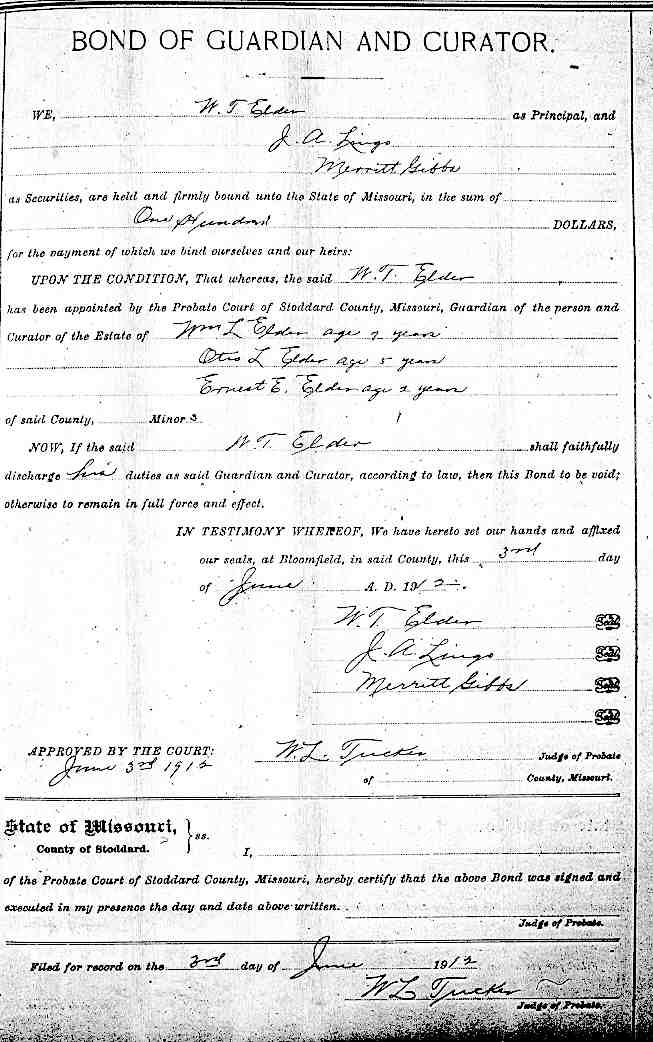 BOND OF GUARDIAN AND CURATOR.
WE, W. T. Elder as Principal, and
J. A. Lingo
Merritt Gibbs
as Securities, are held and firmly bound unto the State of Missouri, in the sum of
One Hundred DOLLARS,
for the payment of which we bind ourselves and our heirs:
UPON THE CONDITION, That whereas, the said W. T. Elder
has been appointed by the Probate Court of Stoddard County, Missouri, Guardian of the person and
Curator of the Estate of Wm L Elder age 7 years
Otis L Elder age 5 years
Ernest E. Elder age 2 years
of said County, Minor s
NOW, If the said W. T. Elder shall faithfully
discharge his duties as said Guardian and Curator, according to law, then this Bond to be void;
otherwise to remain in full force and effect.
IN TESTIMONY WHEREOF, We have hereto set our hands and affixed
our seals, at Bloomfield, in said County, this 3rd day
of June A. D. 1912.
W. T. Elder Seal
J. A. Lingo Seal
Merritt Gibbs Seal
Seal
APPROVED BY THE COURT: W. L. Tucker Judge of Probate
June 3rd 1912 of County, Missouri.
State of Missouri, } ss.
County of Stoddard. I,
of the Probate Court of Stoddard County, Missouri, hereby certify that the above Bond was signed and
executed in my presence the day and date above written.
Judge of Probate.
Filed for record on the 3rd day of June 1912
W L Tucker
Judge of Probate.